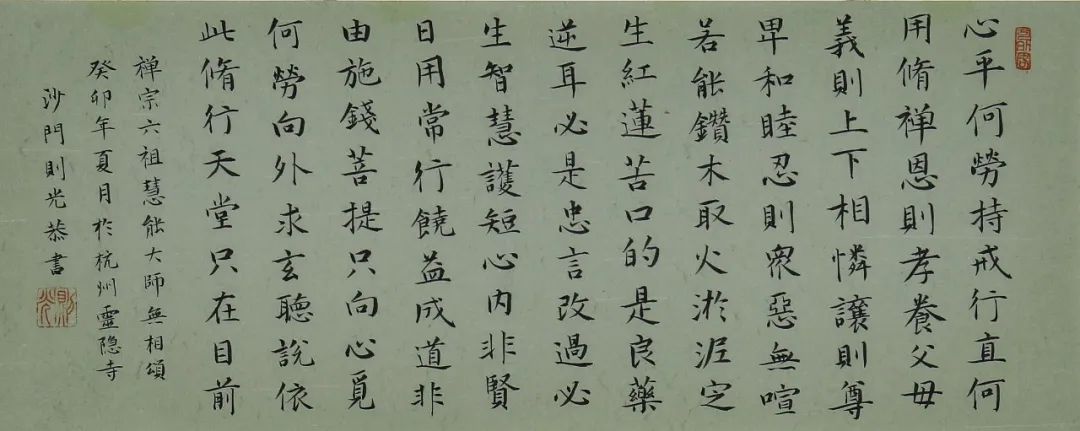 心平何勞持戒行直何
用脩禅恩則孝養父母
義則上下相憐讓則尊
卑和睦忍則衆惡無喧
若能鑽木取火淤泥定
生紅蓮苦口的是良藥
逆耳必是忠言改過必
生智慧護短心内非賢
日用常行饒益成道非
由施錢菩提只向心覓
何勞向外求玄聽說依
此脩行天堂只在目前
禅宗六祖慧能大師無相頌
癸卯年夏月於杭州靈隐寺
沙門則光恭書